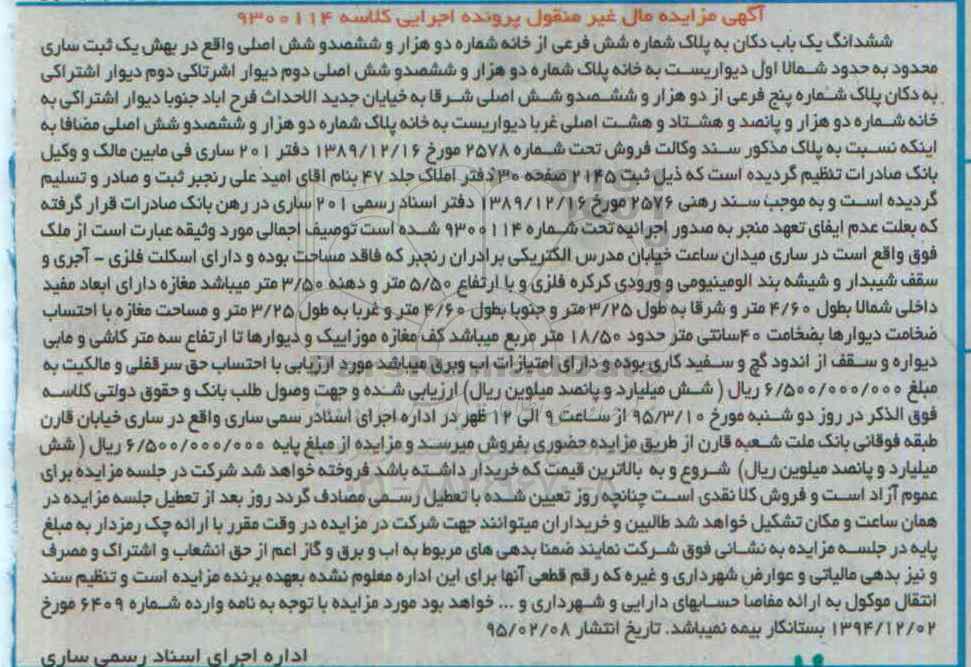 آگهی مزایده مال غیر منقول پرونده اجرایی کلاسه ۹۳۰۰۱۱۴
ششدانگ یک باب دکان به پلاک شماره شش فرعی از خانه شماره دو هزار و ششصدو شش اصلی واقع در بهش یک ثبت ساری
محدود به حدود شمالا اول دیواریست به خانه پلاک شماره دو هزار و ششصدو شش اصلی دوم دیوار اشرتاکی دوم دیوار اشتراکی
به دکان پلاک شماره پنج فرعی از دو هزار و ششصدو شش اصلی شرقا به خیابان جدید الاحداث فرح اباد جنوبا دیوار اشتراکی به
خانه شماره دو هزار و پانصد و هشتاد و هشت اصلی غربا دیواریست به خانه پلاک شماره دو هزار و ششصدو شش اصلی مضافا به
اینکه نسبت به پلاک مذکور سند وکالت فروش تحت شماره ۲۵۷۸ مورخ ۱۳۸۹/۱۲/۱۶ دفتر ۲۰۱ ساری فی مابین مالک و وکیل
بانک صادرات تنظیم گردیده است که ذیل ثبت ۲۱۴۵ صفحه ۳۰ دفتر املاک جلد ۴۷ بنام اقای امید علی رنجبر ثبت و صادر و تسلیم
گردیده است و به موجب سند رهنی ۲۵۷۶ مورخ ۱۳۸۹/۱۲/۱۶ دفتر اسناد رسمی ۲۰۱ ساری در رهن بانک صادرات قرار گرفته
که بعلت عدم ایفای تعهد منجر به صدور اجرائیه تحت شماره ۹۳۰۰۱۱۴ شده است توصیف اجمالی مورد وثیقه عبارت است از ملک
فوق واقع است در ساری میدان ساعت خیابان مدرس الکتریکی برادران رنجبر که فاقد مساحت بوده و دارای اسکلت فلزی - آجری و
سقف شیبدار و شیشه بند الومینیومی و ورودی کرکره فلزی و با ارتفاع ۵/۵۰ متر و دهنه ۳/۵۰ متر میباشد مغازه دارای ابعاد مفید
داخلی شمالا بطول ۴/۶۰ متر و شرقا به طول ۳/۲۵ متر و جنوبا بطول ۴/۶۰ متر و غربا به طول ۳/۲۵ متر و مساحت مغازه با احتساب
ضخامت دیوارها بضخامت ۴۰سانتی متر حدود ۱۸/۵۰ متر مربع میباشد کف مغازه موزاییک و دیوارها تا ارتفاع سه متر کاشی و مابی
دیواره و سقف از اندود گچ و سفید کاری بوده و دارای امتیازات اب وبرق میباشد مورد ارزیابی با احتساب حق سرقفلی و مالکیت به
مبلغ ۶/۵۰۰/۰۰۰/۰۰۰ ریال ( شش میلیارد و پانصد میلوین ریال) ارزیابی شده و جهت وصول طلب بانک و حقوق دولتی کلاسه
فوق الذکر در روز دو شنبه مورخ ۹۵/۳/۱۰ از ساعت ۹ الی ۱۲ ظهر در اداره اجرای اسنادر سمی ساری واقع در ساری خیابان قارن
طبقه فوقانی بانک ملت شعبه قارن از طریق مزایده حضوری بفروش میرسد و مزایده از مبلغ پایه ۶/۵۰۰/۰۰۰/۰۰۰ ریال ( شش
میلیارد و پانصد میلوین ریال) شروع و به بالاترین قیمت که خریدار داشته باشد فروخته خواهد شد شرکت در جلسه مزایده برای
عموم آزاد است و فروش کلا نقدی است چنانچه روز تعیین شده با تعطیل رسمی مصادف گردد روز بعد از تعطیل جلسه مزایده در
همان ساعت و مکان تشکیل خواهد شد طالبین و خریداران میتوانند جهت شرکت در مزایده در وقت مقرر با ارائه چک رمزدار به مبلغ
پایه در جلسه مزایده به نشانی فوق شرکت نمایند ضمنا بدهی های مربوط به اب و برق و گاز اعم از حق انشعاب و اشتراک و مصرف
و نیز بدهی مالیاتی و عوارض شهرداری و غیره که رقم قطعی آنها برای این اداره معلوم نشده بعهده برنده مزایده است و تنظیم سند
انتقال موکول به ارائه مفاصا حسابهای دارایی و شهرداری و ... خواهد بود مورد مزایده با توجه به نامه وارده شماره ۶۴۰۹ مورخ
۱۳۹۴/۱۲/۰۲ بستانکار بیمه نمیباشد. تاریخ انتشار ۹۵/۰۲/۰۸
اداره اجرای اسناد رسمی ساری